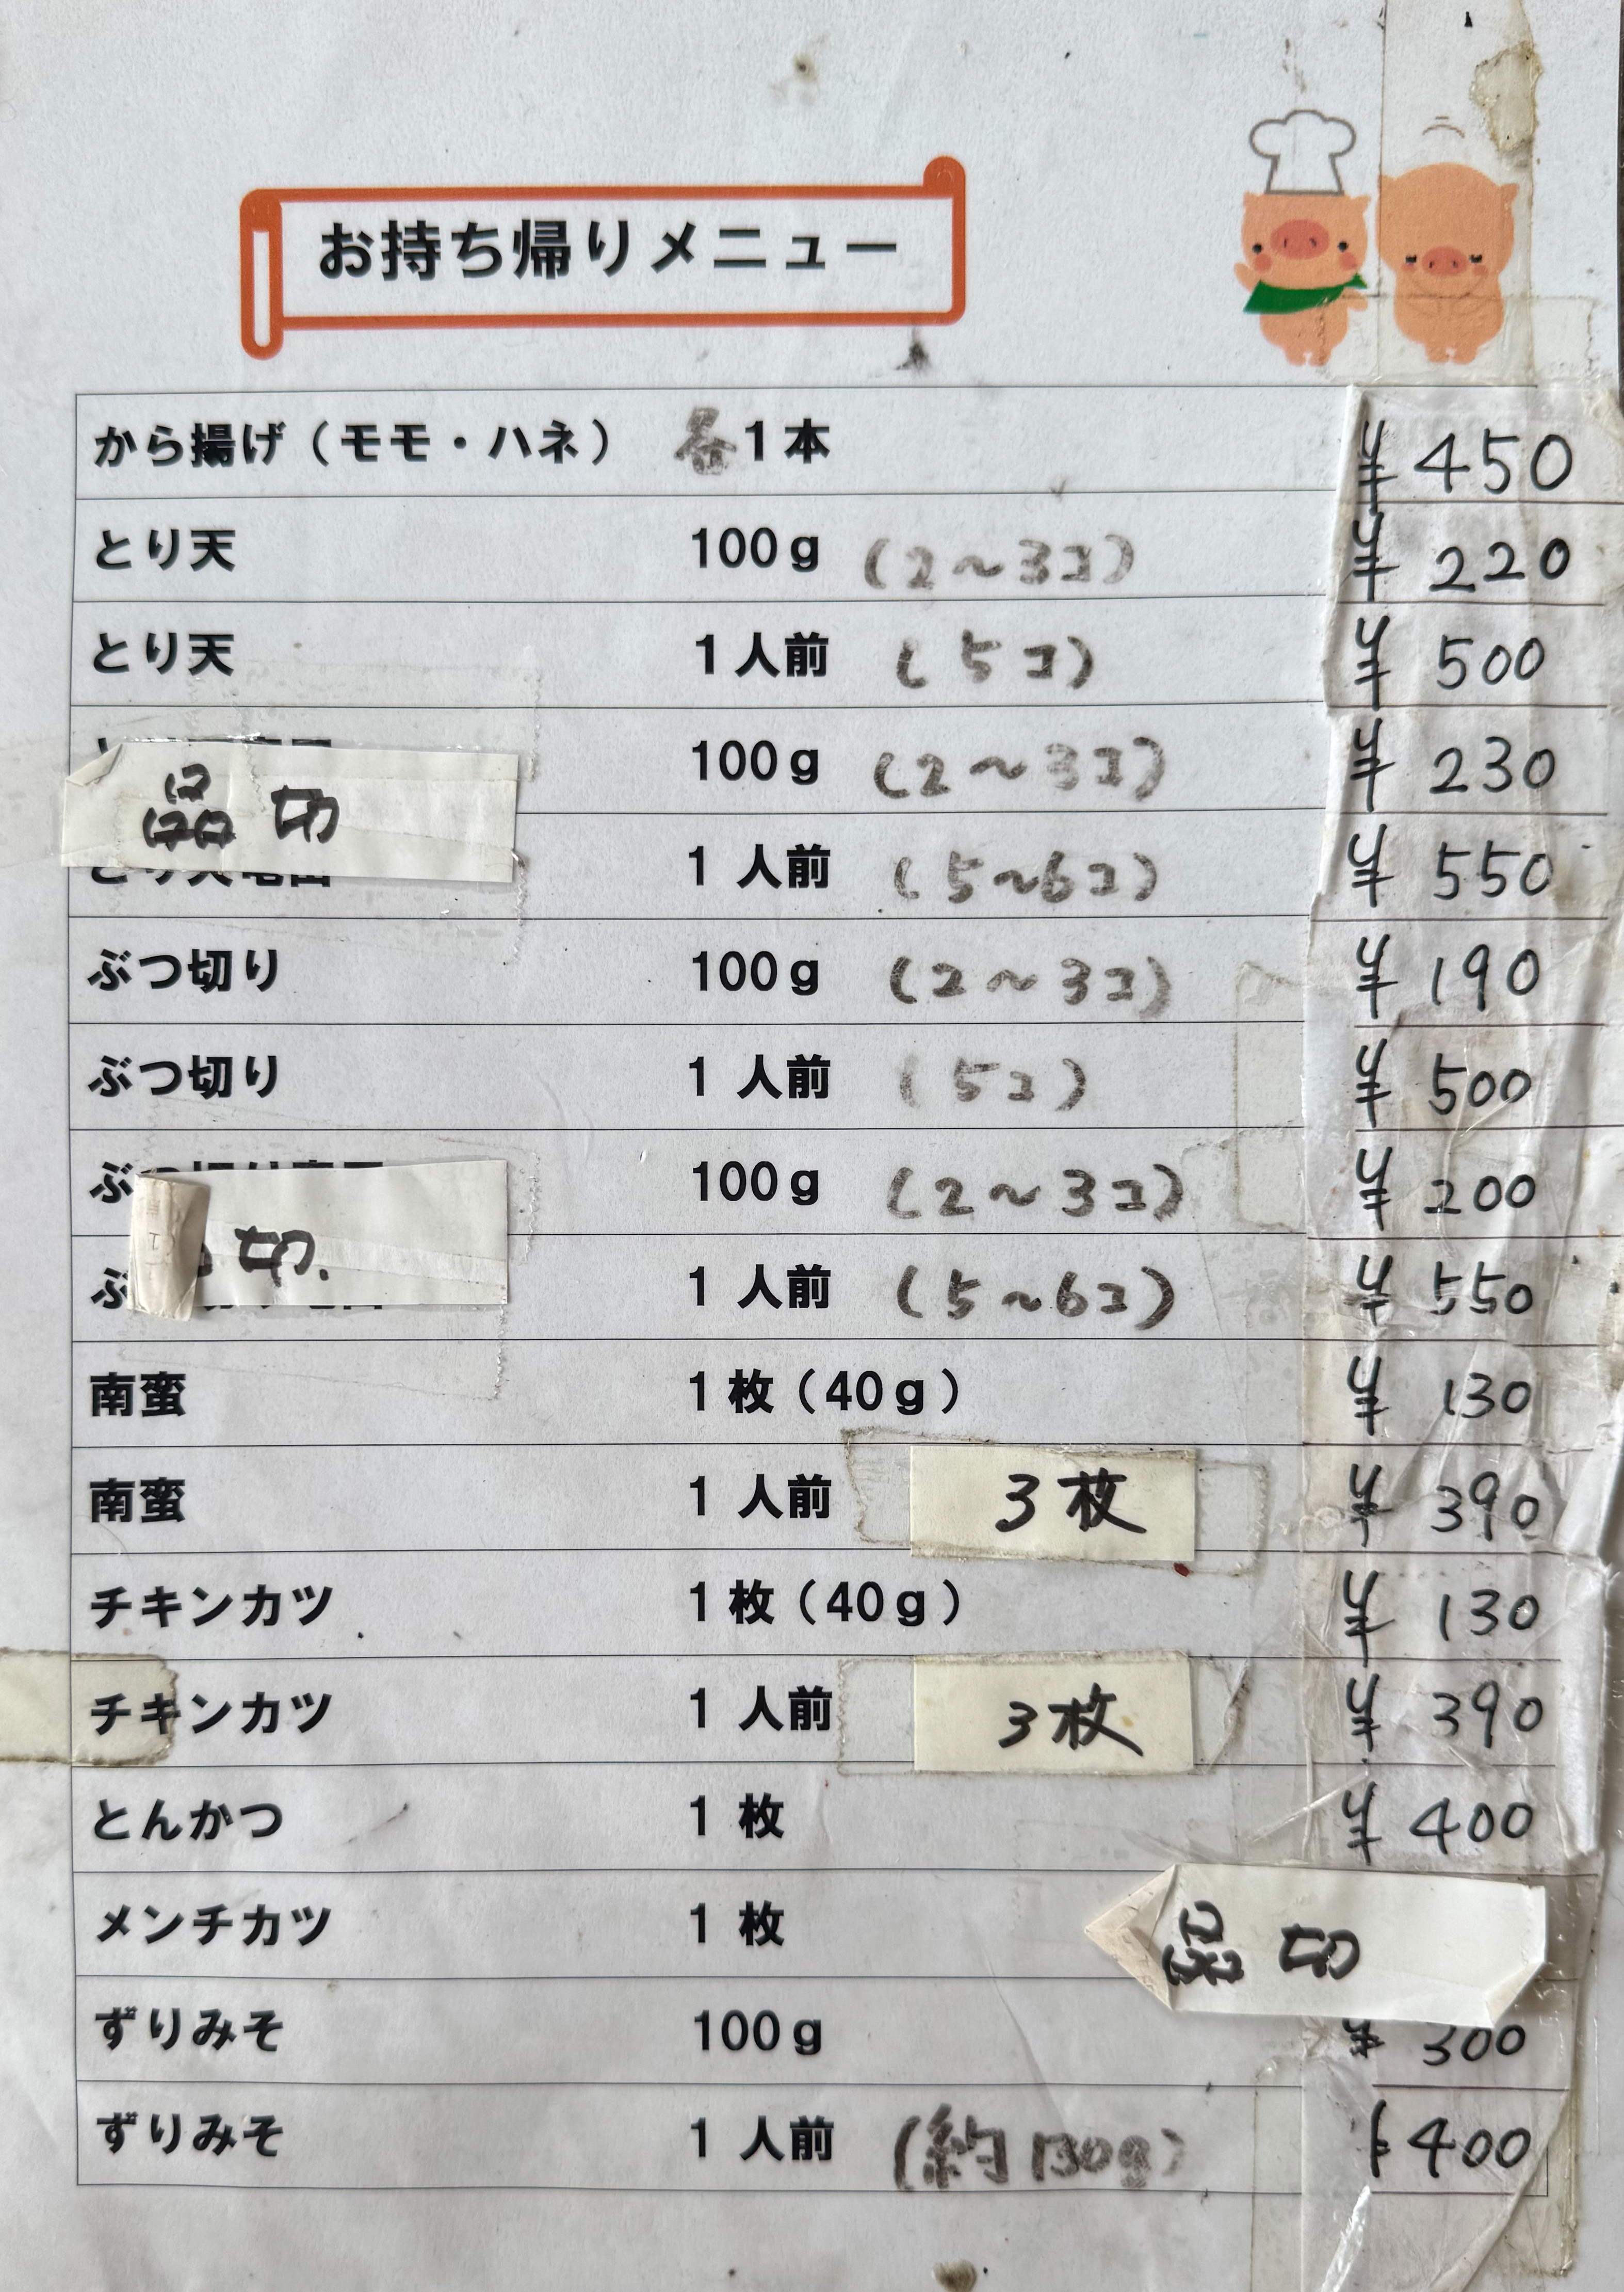 お持ち帰りメニュー
から揚げ（モモ・ハネ） 各1本 ¥450
とり天 100g (2～3コ) ¥220
とり天 1人前 (5コ) ¥500
100g (2～3コ) ¥230
品切
1人前 (5～6コ) ¥550
ぶつ切り 100g (2～3コ) ¥190
ぶつ切り 1人前 (5コ) ¥500
100g (2～3コ) ¥200
切.
1人前 (5～6コ) ¥550
南蛮 1枚（40g） ¥130
南蛮 1人前 3枚 ¥390
チキンカツ 1枚（40g） ¥130
チキンカツ 1人前 3枚 ¥390
とんかつ 1枚 ¥400
メンチカツ 1枚 品切
ずりみそ 100g ¥300
ずりみそ 1人前 (約130g) ¥400